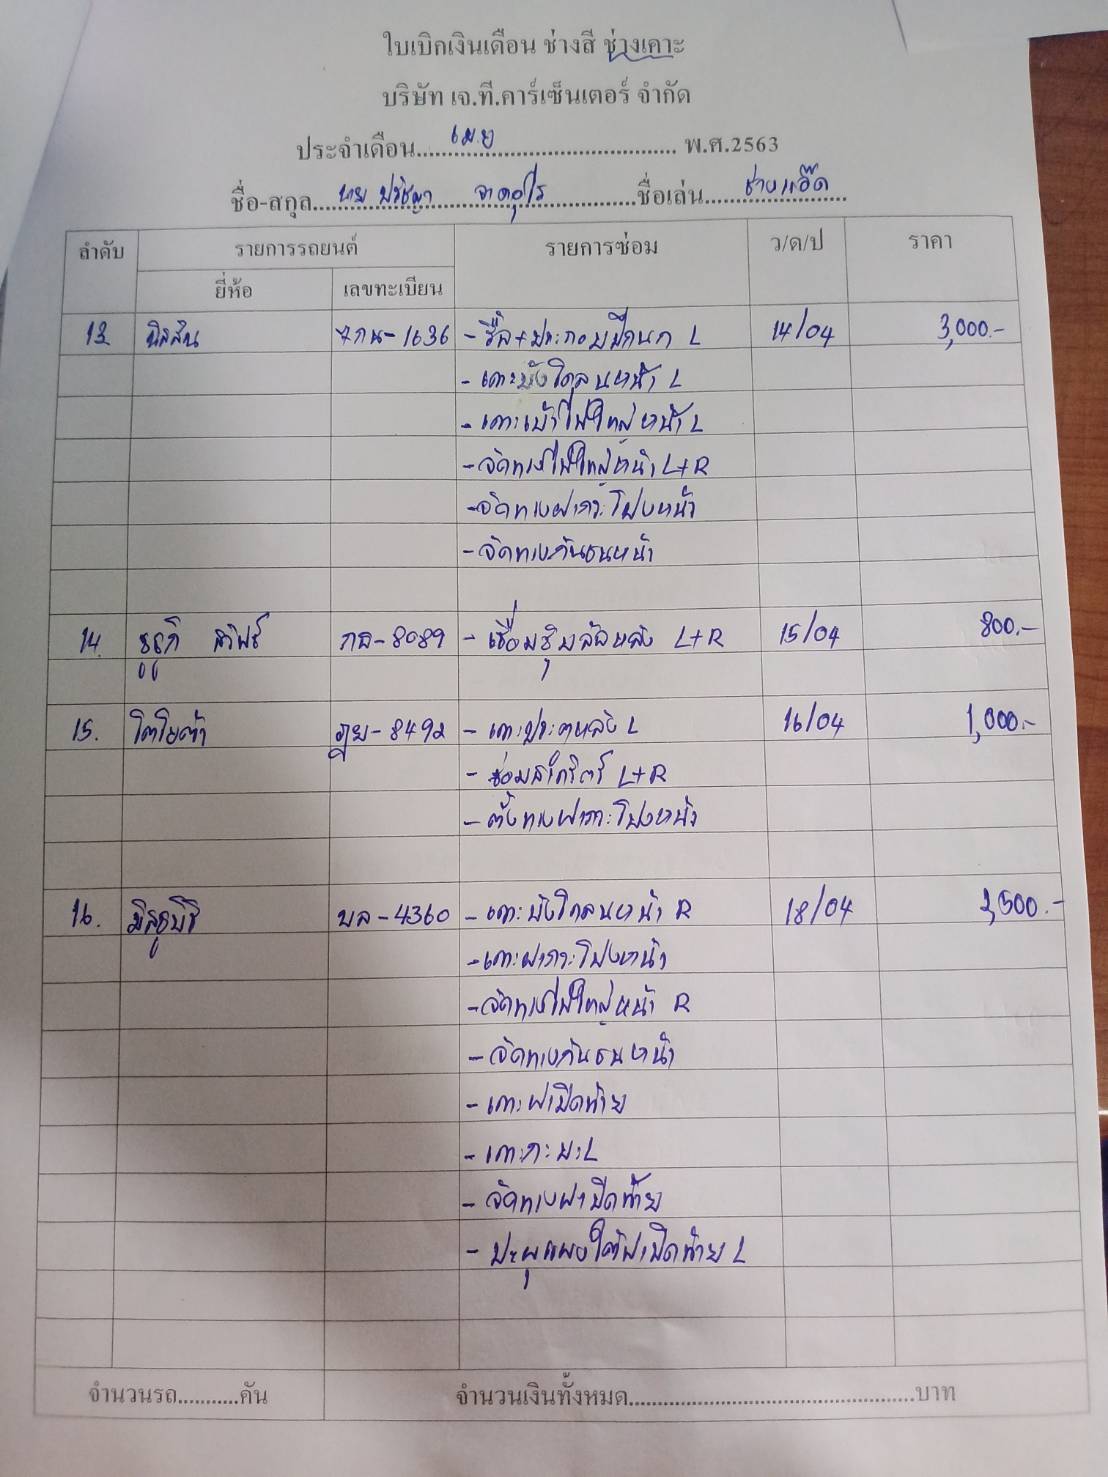 ใบเบิกเงินเดือน ช่างสี ช่างเคาะ
บริษัท เจ.ที.คาร์เซ็นเตอร์ จำกัด
ประจำเดือน....เม.ย.................................... พ.ศ.2563
ชื่อ-สกุล....นาย ปริชญา ....................ชื่อเล่น.....ช่างแอ๊ด...............
ลำดับ รายการรถยนต์ รายการซ่อม ว/ด/ป ราคา
ยี่ห้อ เลขทะเบียน
13. นิสสัน 7กน-1636 - รื้อ+ประกอบปีกนก L 14/04 3,000.-
- เคาะบังโคลนหน้า L
- เคาะเบ้าไฟใหญ่หน้า L
- จัดทางไฟใหญ่หน้า L+R
- จัดทางฝากระโปงหน้า
- จัดทางกันชนหน้า
14. ซูซูกิ สวิฟร์ กอ-8089 - เชื่อมซุ้มล้อหลัง L+R 15/04 800.-
15. โตโยต้า ฎย-8492 - เคาะประตูหลัง L 16/04 1,000.-
- ซ่อมสเกิร์ตร์ L+R
- ตั้งทางฝากระโปงหน้า
16. มิสซูบิชิ บล-4360 - เคาะบังโคลนหน้า R 18/04 2,500.-
- เคาะฝากระโปงหน้า
- จัดทางไฟใหญ่หน้า R
- จัดทางกันชนหน้า
- เคาะฝาปิดท้าย
- เคาะกะบะL
- จัดทางฝาปิดท้าย
- ปะผุแผงใต้ฝาปิดท้าย L
จำนวนรถ...........คัน จำนวนเงินทั้งหมด................................................บาท